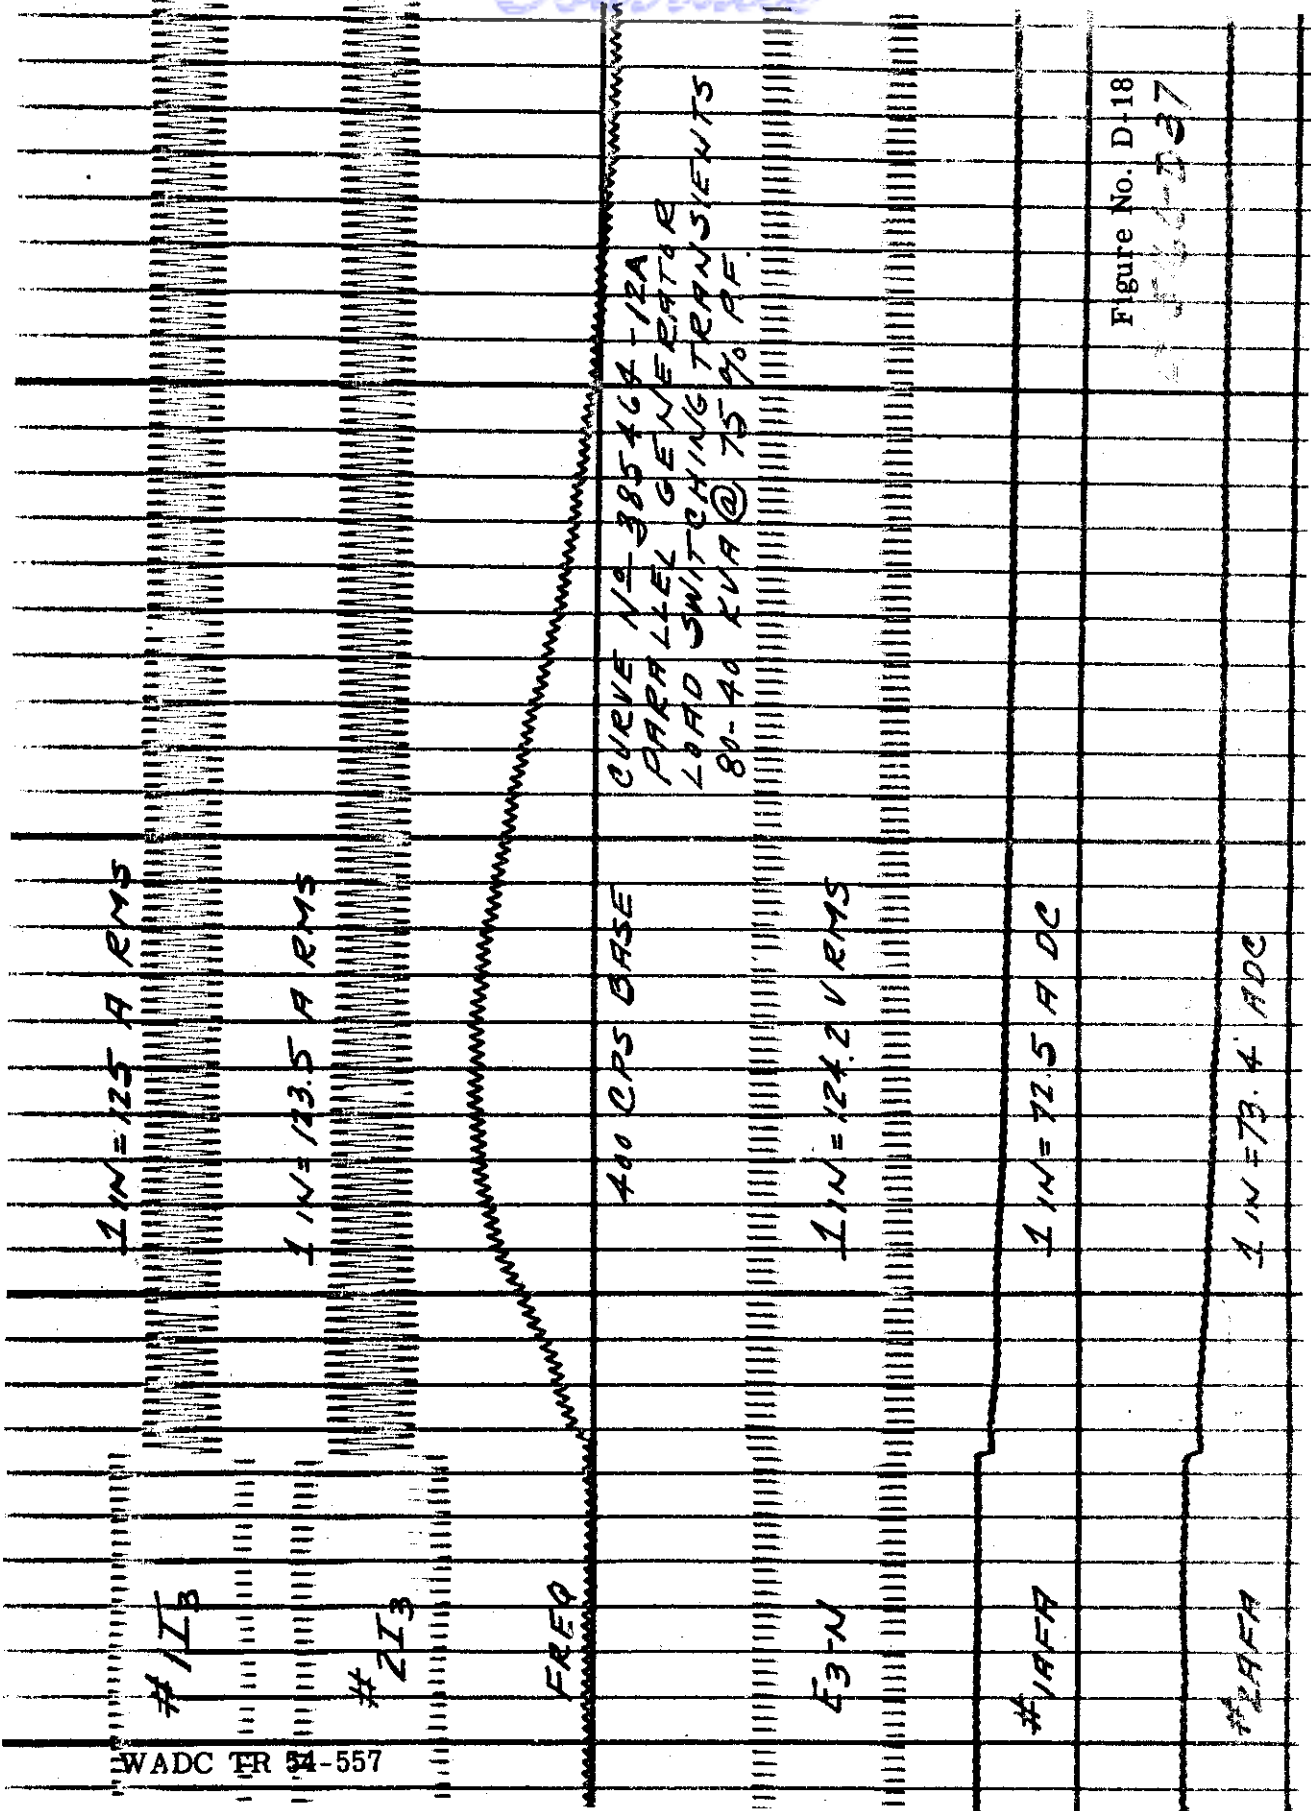 1 IN = 125 A RMS
# 1 I3
1 IN = 123.5 A RMS
# 2 I3
FREQ
400 CPS BASE
CURVE Nº 385464-12A
PARALLEL GENERATOR
LOAD SWITCHING TRANSIENTS
80-40 KVA @ 75 % P.F.
E3-N
1 IN = 124.2 V RMS
# 1 AFA
1 IN = 72.5 A DC
Figure No. D-18
# 2 AFA
1 IN = 73.4 ADC
WADC TR 54-557